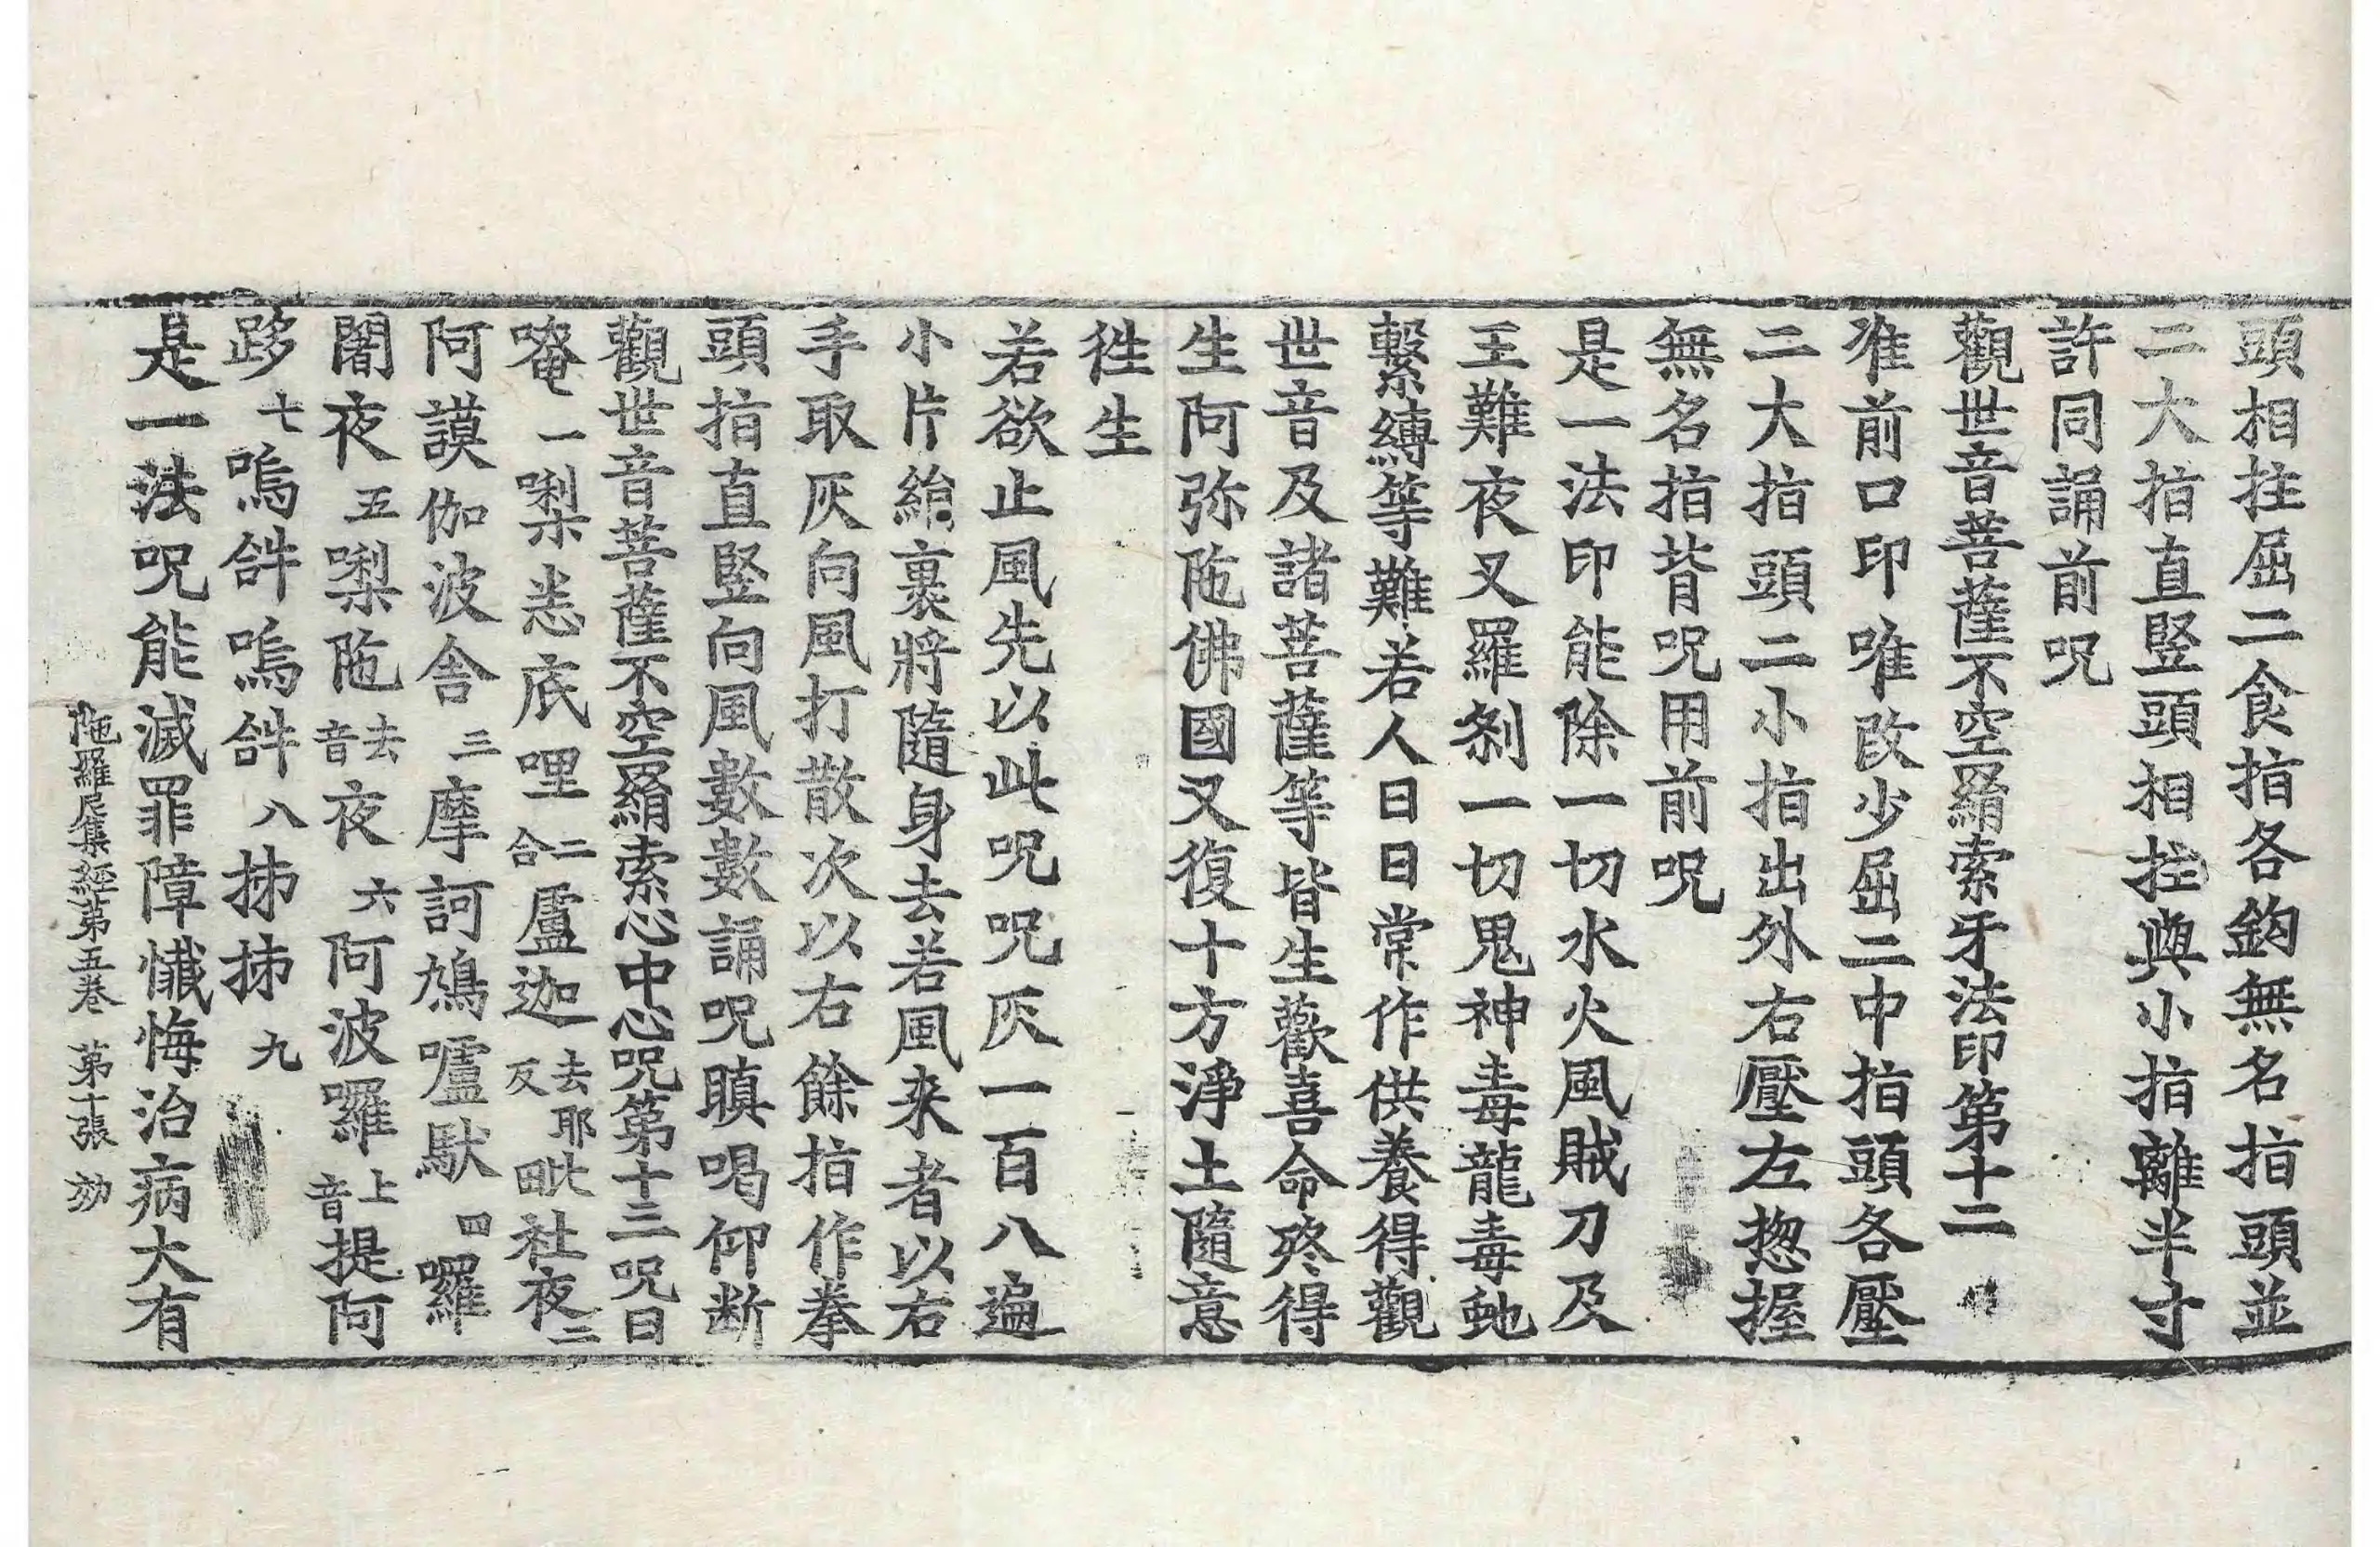 頭相拄屈二食指各鉤無名指頭並
二大指直竪頭相拄與小指離半寸
許同誦前呪
觀世音菩薩不空羂索牙法印第十二
准前口印唯改少屈二中指頭各壓
二大指頭二小指出外右壓左揔握
無名指背呪用前呪
是一法印能除一切水火風賊刀及
王難夜叉羅刹一切鬼神毒龍毒虵
繫縛等難若人日日常作供養得觀
世音及諸菩薩等皆生歡喜命終得
生阿弥陁佛國又復十方淨土隨意
徃生
若欲止風先以此呪呪灰一百八遍
小片絹裹將隨身去若風来者以右
手取灰向風打散次以右餘指作拳
頭指直竪向風數數誦呪瞋喝仰断
觀世音菩薩不空羂索心中心呪第十三呪曰
唵一㘑恙底哩二合盧迦去耶反毗社夜二
阿謨伽波舍三摩訶鳩嚧馱四囉
闍夜五㘑陁去音夜六阿波囉上音提阿
跢七嗚𤙖嗚𤙖八抺抺九
是一法呪能滅罪障懺悔治病大有
陁羅尼集經第五卷 第十張 効